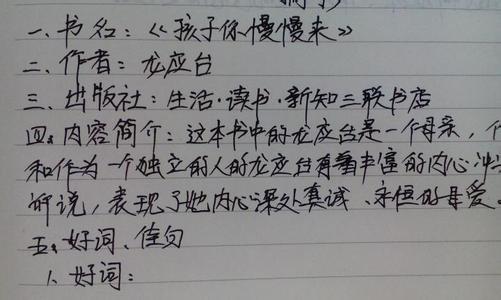 一、书名：《孩子你慢慢来》
二、作者：龙应台
三、出版社：生活·读书·新知三联书店
四、内容简介：这本书中的龙应台是一个母亲，
和作为一个独立的人的龙应台有着丰富的内心冲
所说，表现了她内心深处真诚、永恒的母爱。
五、好词、佳句
1、好词：